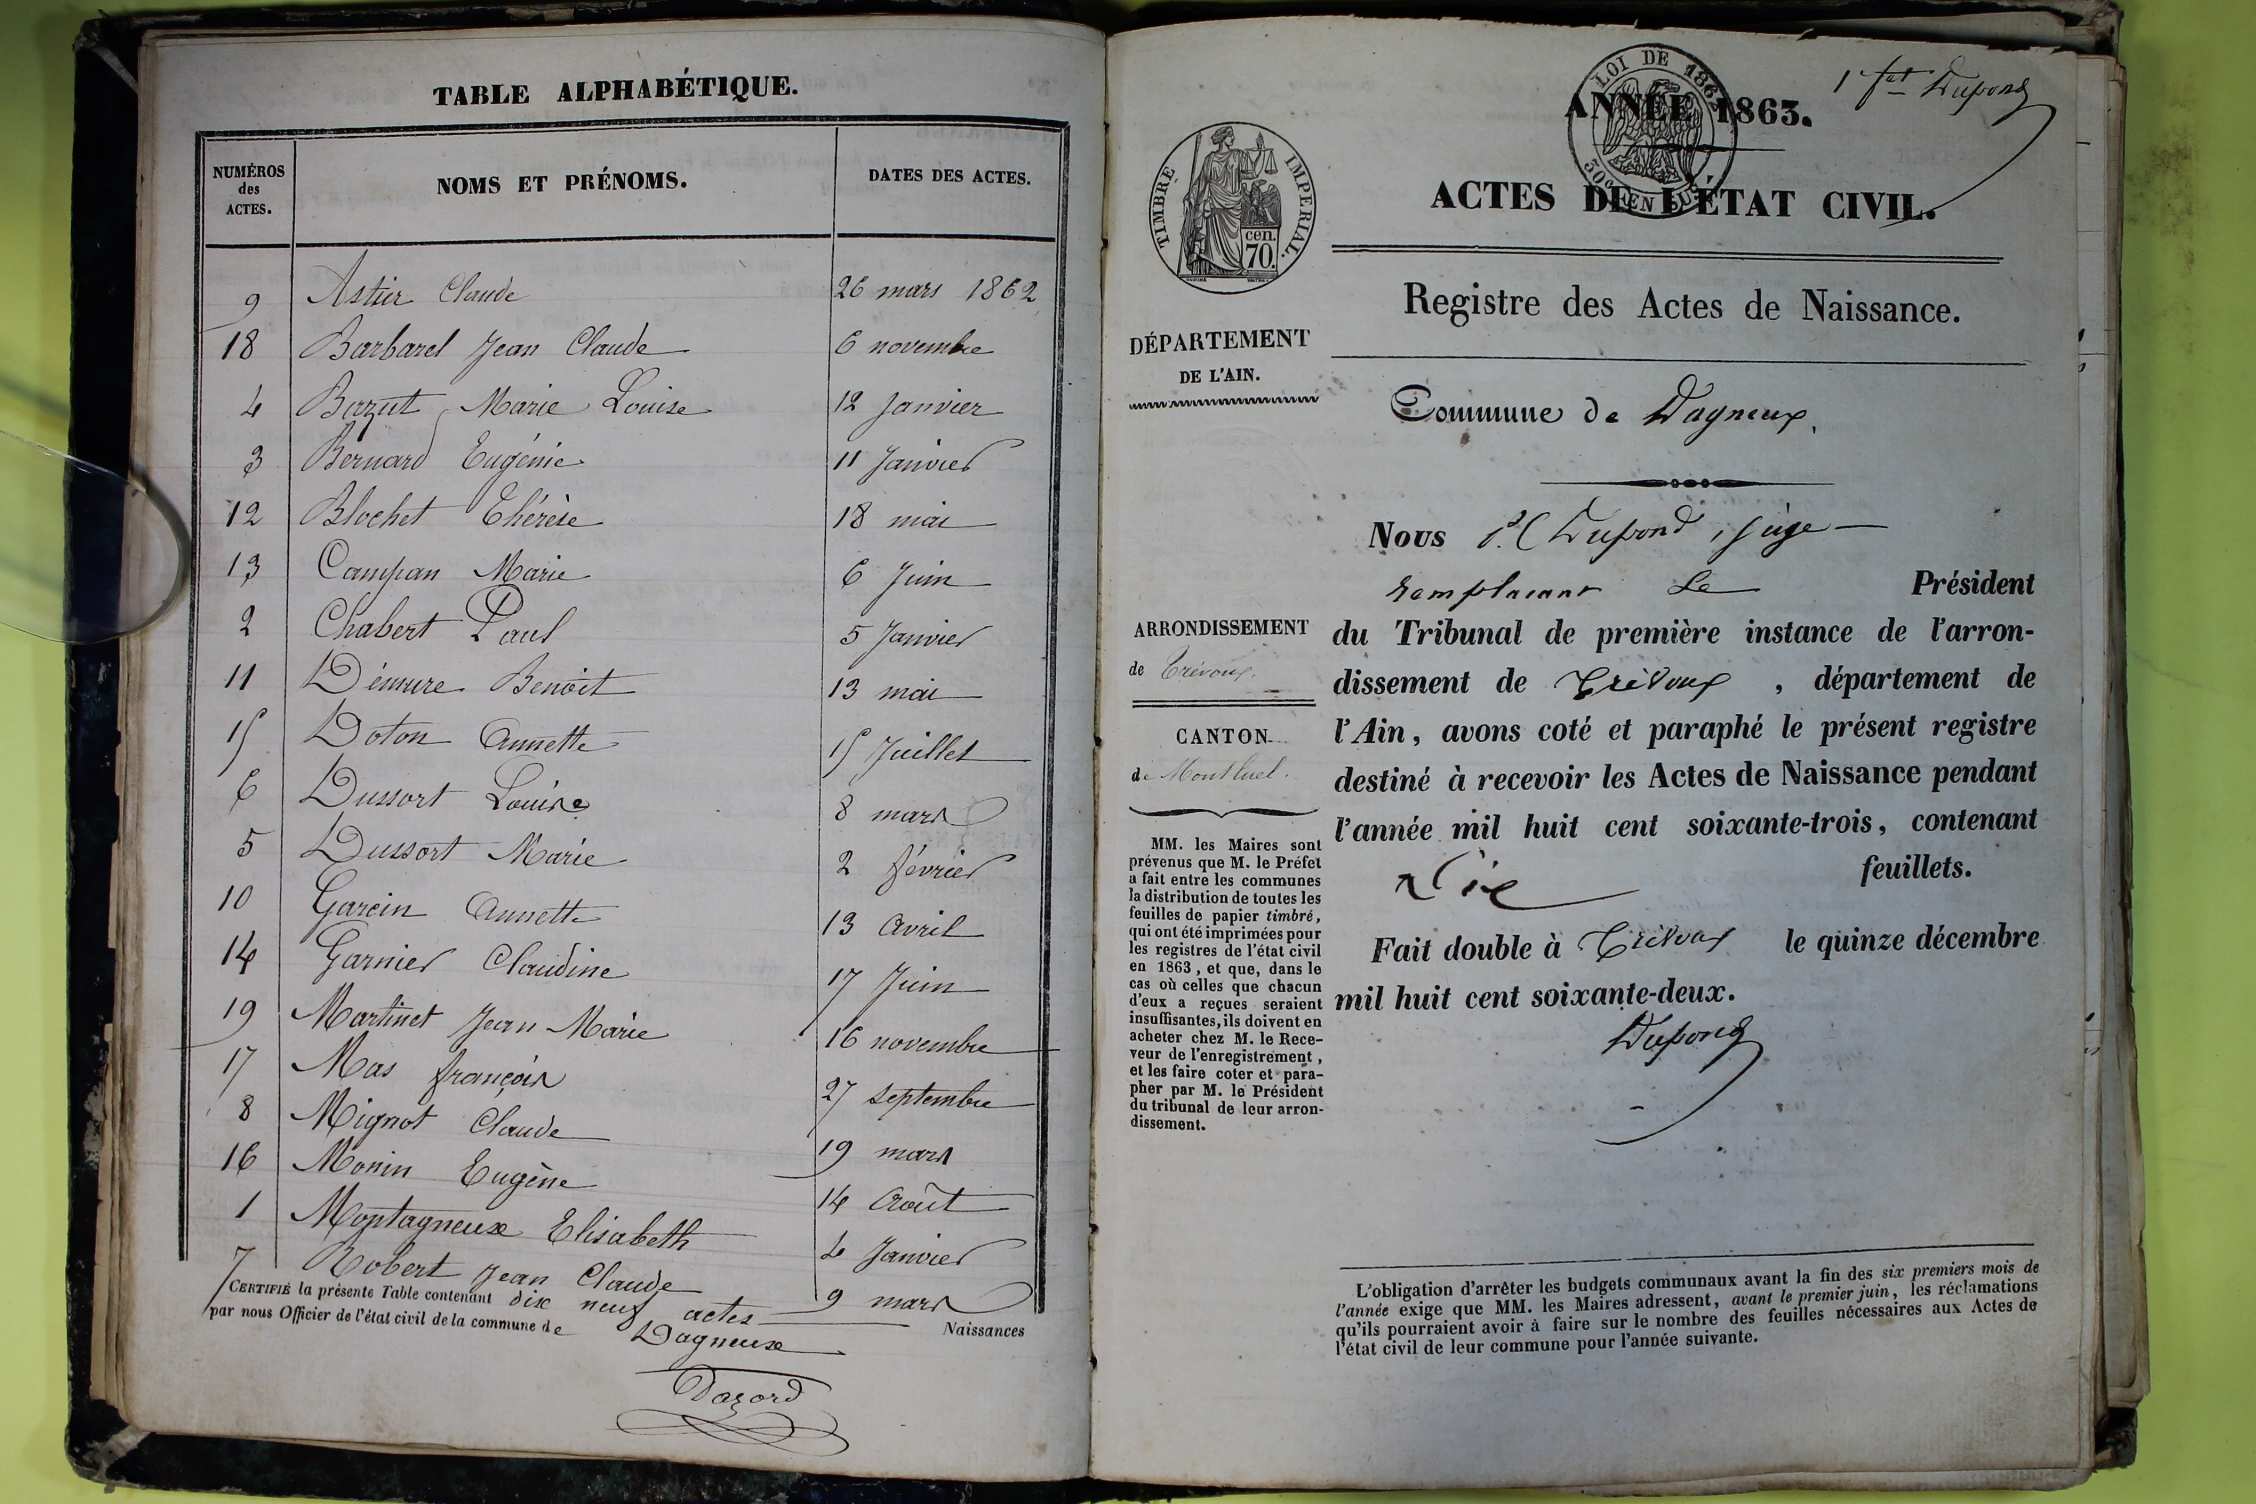 TABLE ALPHABÉTIQUE.
NUMÉROS des ACTES. NOMS ET PRÉNOMS. DATES DES ACTES.
9 Astier Claude 26 mars 1862
18 Barbarel Jean Claude 6 novembre
4 Bazut Marie Louise 12 Janvier
3 Bernard Eugénie 11 Janvier
12 Blochet Thérèse 18 mai
13 Campan Marie 6 Juin
2 Chabert Paul 5 Janvier
11 Démure Benoit 13 mai
15 Doton Annette 15 Juillet
6 Dussort Louise 8 mars
5 Dussort Marie 2 février
10 Garcin Annette 13 Avril
14 Garnier Claudine 17 Juin
19 Martinet Jean Marie 16 novembre
17 Mas françois 27 septembre
8 Mignot Claude 19 mars
16 Monin Eugène 14 Août
1 Montagneux Elisabeth 4 Janvier
7 Robert Jean Claude 9 mars
CERTIFIÉ la présente Table contenant dix neuf actes
par nous Officier de l'état civil de la commune de Dagneux Naissances
Dazord
1er fet Dupond
LOI DE 1862
30c EN SUS
ANNÉE 1863.
TIMBRE IMPERIAL.
cen. 70.
ACTES DE L'ÉTAT CIVIL.
Registre des Actes de Naissance.
DÉPARTEMENT
DE L'AIN.
Commune de Dagneux
ARRONDISSEMENT
de Trévoux.
CANTON
de Montluel.
MM. les Maires sont
prévenus que M. le Préfet
a fait entre les communes
la distribution de toutes les
feuilles de papier timbré,
qui ont été imprimées pour
les registres de l'état civil
en 1863, et que, dans le
cas où celles que chacun
d'eux a reçues seraient
insuffisantes, ils doivent en
acheter chez M. le Rece-
veur de l'enregistrement,
et les faire coter et para-
pher par M. le Président
du tribunal de leur arron-
dissement.
Nous Dupond, juge
remplaçant Le Président
du Tribunal de première instance de l'arron-
dissement de Trévoux, département de
l'Ain, avons coté et paraphé le présent registre
destiné à recevoir les Actes de Naissance pendant
l'année mil huit cent soixante-trois, contenant
feuillets.
Fait double à Trévoux le quinze décembre
mil huit cent soixante-deux.
Dupond
L'obligation d'arrêter les budgets communaux avant la fin des six premiers mois de
l'année exige que MM. les Maires adressent, avant le premier juin, les réclamations
qu'ils pourraient avoir à faire sur le nombre des feuilles nécessaires aux Actes de
l'état civil de leur commune pour l'année suivante.